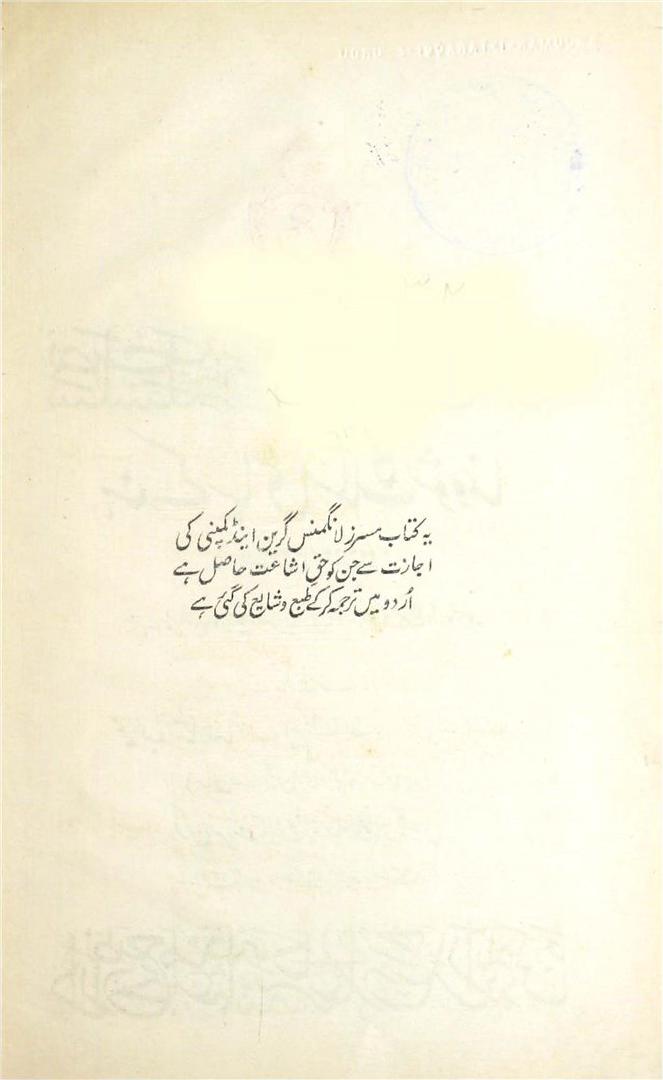 یہ کتاب مسرز لانگمنس گرین اینڈ کمپنی کی
اجازت سے جن کو حقِ اشاعت حاصل ہے
اُردو میں ترجمہ کرکے طبع و شایع کی گئی ہے